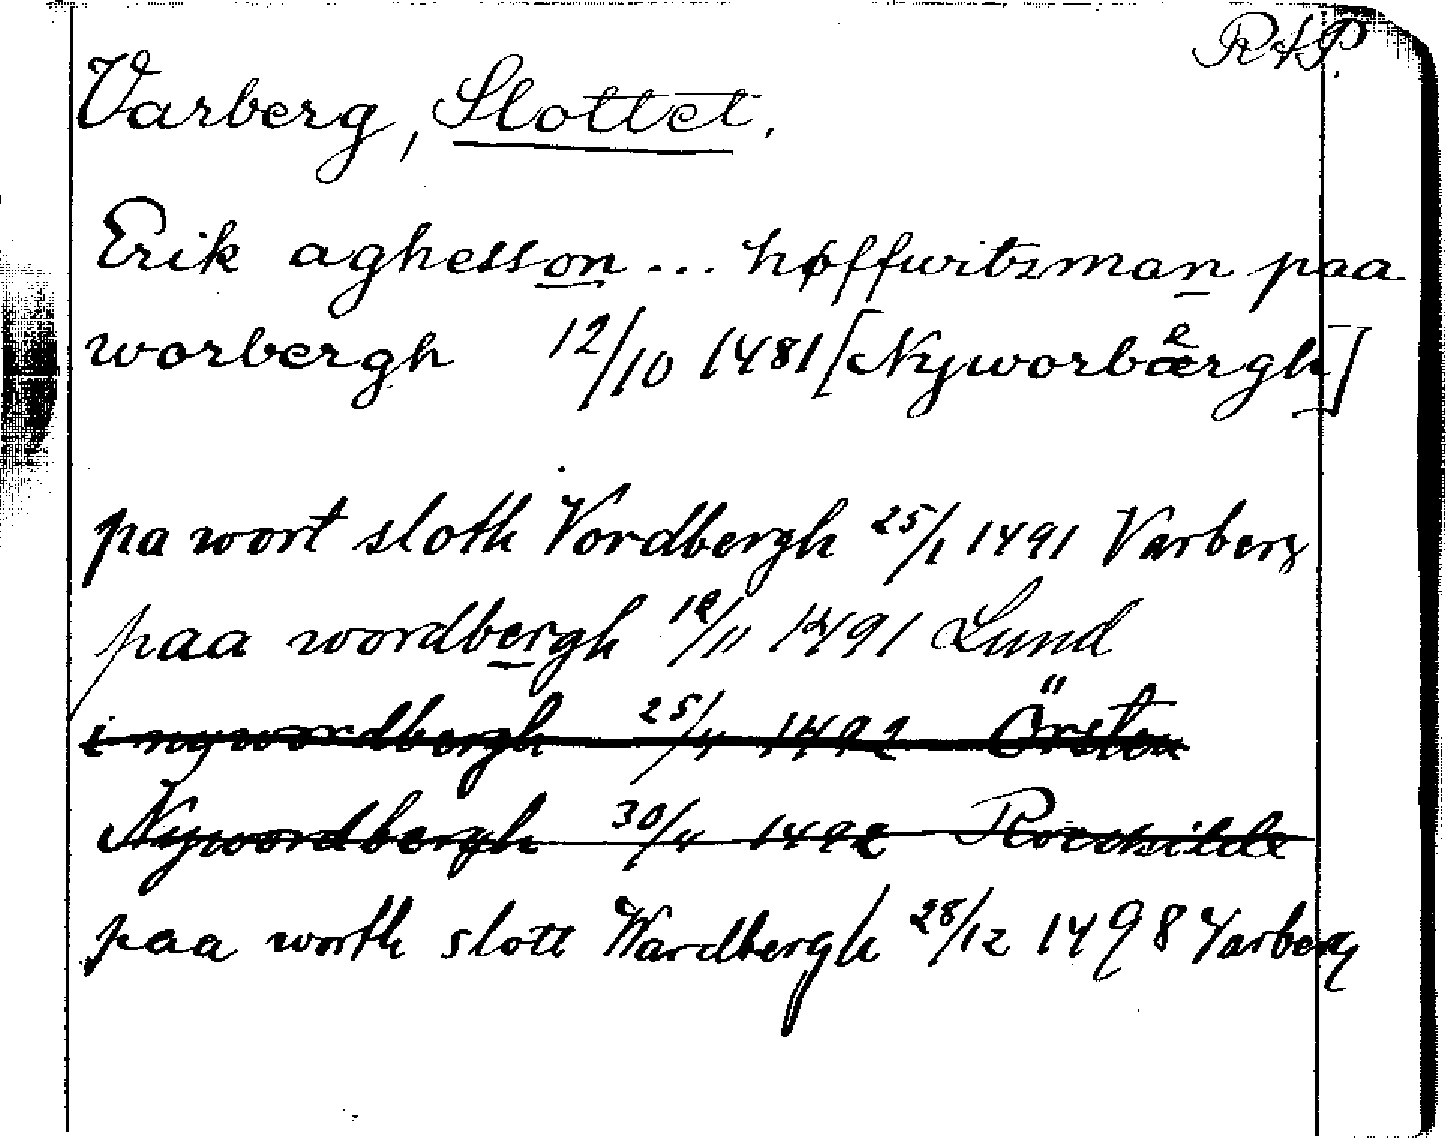 RAP.
Varberg, Slottet.
Erik aghesson ... høffwitzman paa
worbergh 12/10 1481 [Nyworbærgh]
pa wort sloth Vordbergh 25/1 1491 Varberg
paa wordbergh 12/11 1491 Lund
i nywordbergh 25/11 1492 Örsten
Nywordbergh 30/11 1492 Roeskilde
paa worth slott Wardbergh 28/12 1498 Varberg